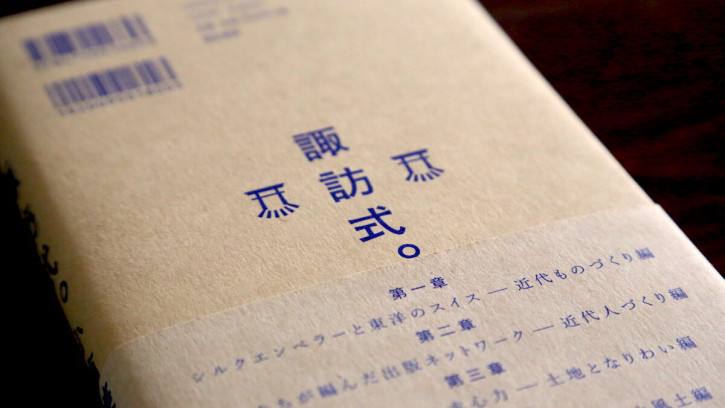 諏訪式。
第一章
シルクエンペラーと東洋のスイス—近代ものづくり編
第二章
ちが編んだ出版ネットワーク—近代人づくり編
第三章
心力—土地となりわい編
風土編